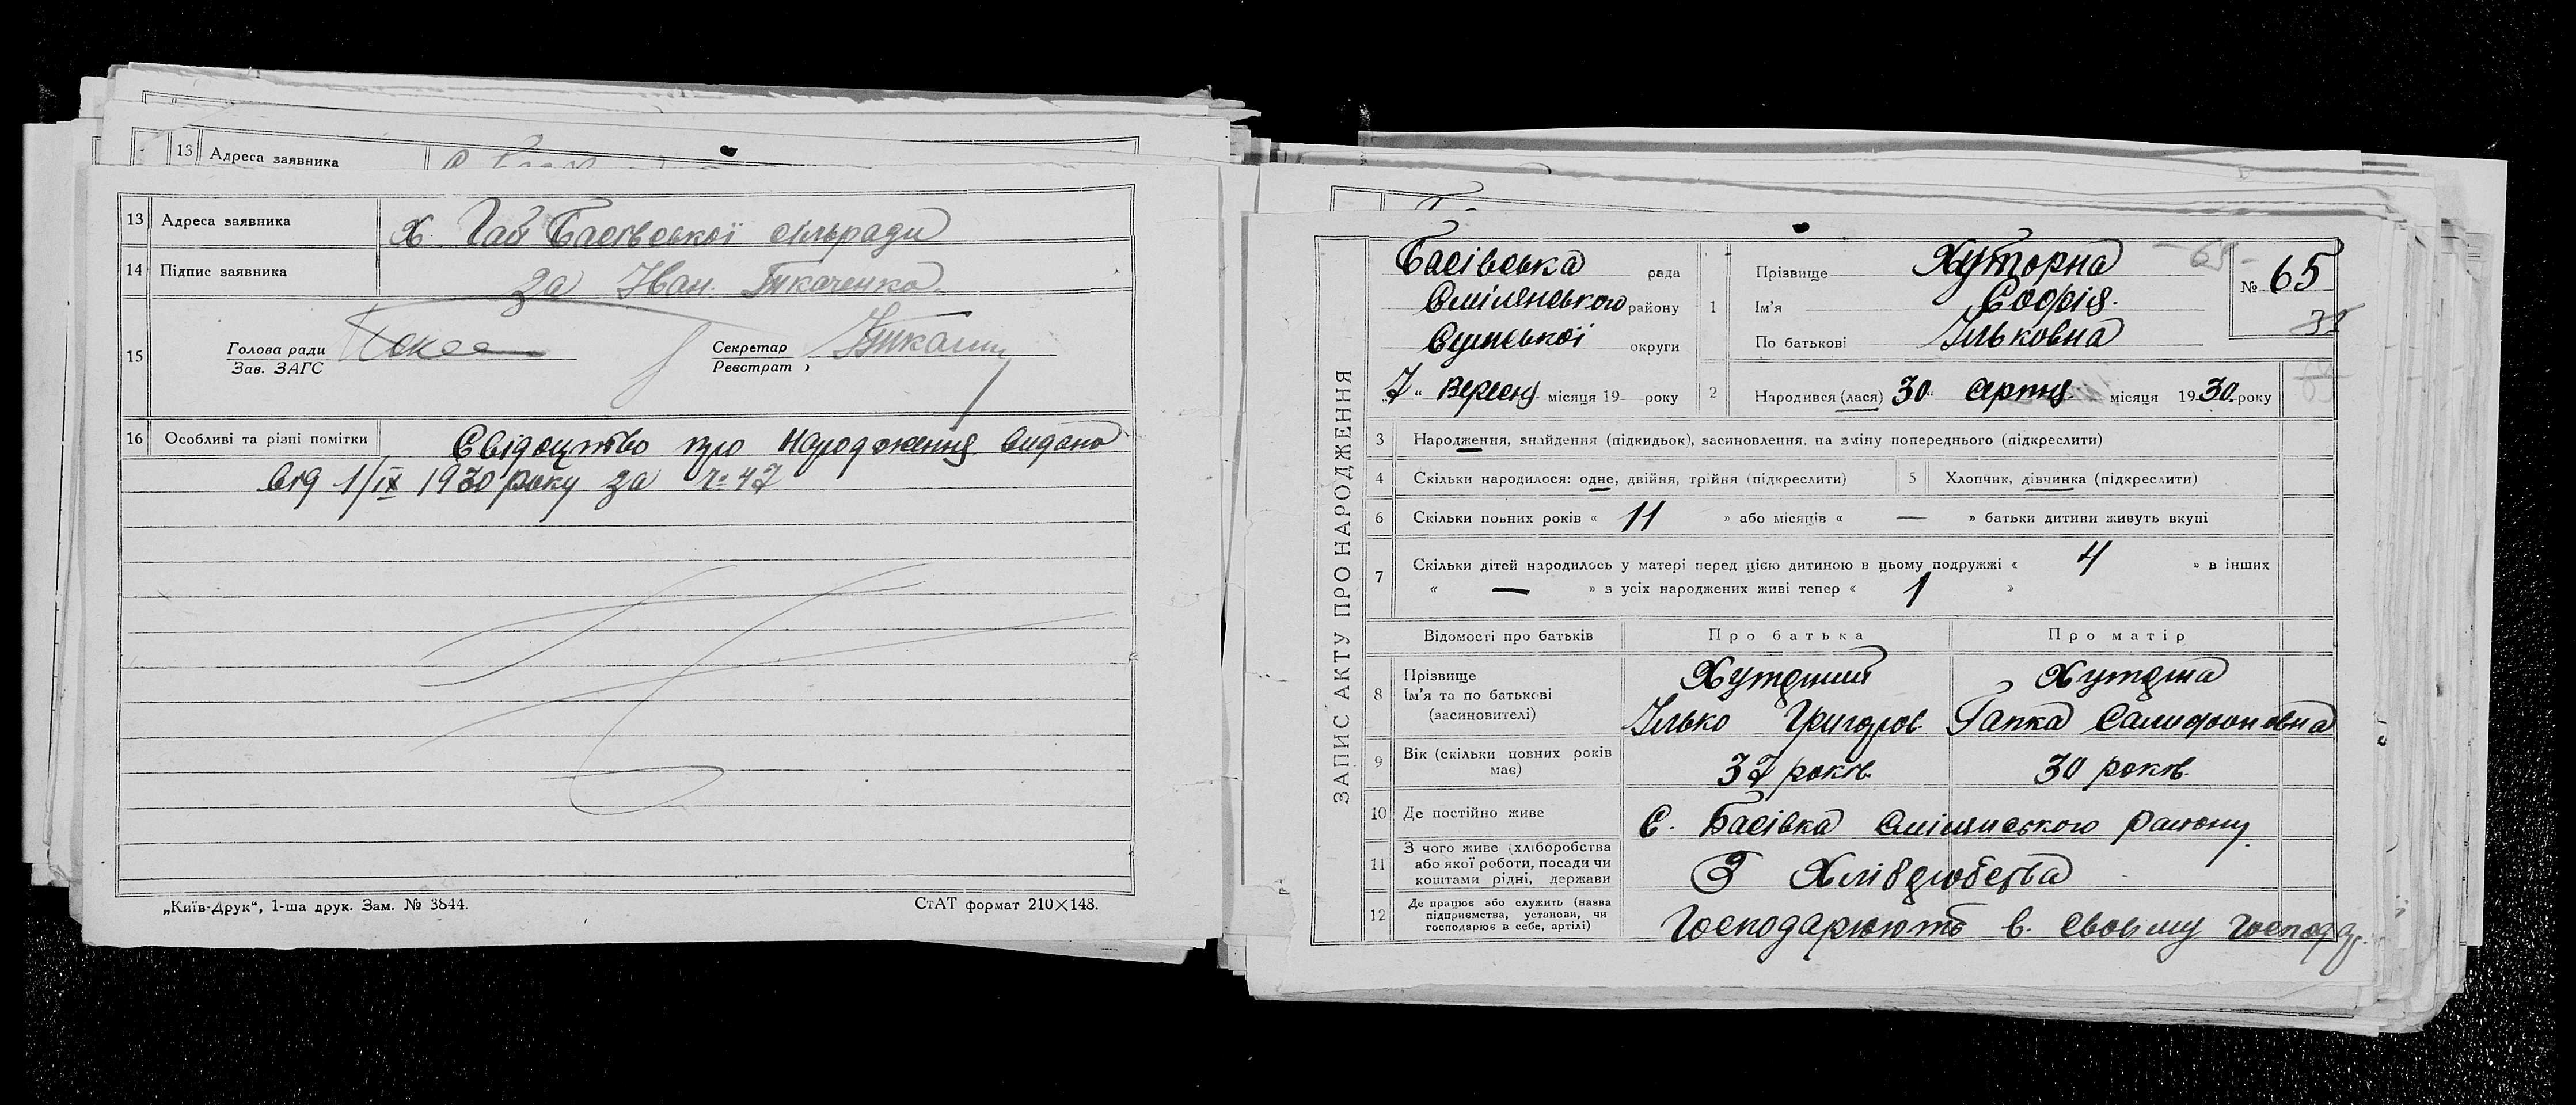 13 Адреса заявника
13 Адреса заявника Х. Гай Басівської сільради
14 Підпис заявника за Іван Ткаченко
15 Голова ради
Зав. ЗАГС
Секретар
Реєстрат
16 Особливі та різні помітки Свідоцтво про народження видано
від 1/IX 1930 року за № 47
„Київ-Друк“, 1-ша друк. Зам. № 3844.
СтАТ формат 210×148.
ЗАПИС АКТУ ПРО НАРОДЖЕННЯ
Басівська рада
Смілянського району
Сумської округи
„7“ Вересня місяця 19 року
1 Прізвище Хуторна
Ім'я Софія.
По батькові Ільковна
№ 65
2 Народився (лася) 30 серпня місяця 1930 року
3 Народження, знайдення (підкидьок), засиновлення, на зміну попереднього (підкреслити)
4 Скільки народилося: одне, двійня, трійня (підкреслити)
5 Хлопчик, дівчинка (підкреслити)
6 Скільки повних років « 11 » або місяців « — » батьки дитини живуть вкупі
7 Скільки дітей народилось у матері перед цією дитиною в цьому подружжі « 4 » в інших
« — » з усіх народжених живі тепер « 1 »
Відомості про батьків Про батька Про матір
8 Прізвище
Ім'я та по батькові
(засиновителі)
Хуторний Хуторна
Ілько Григоров. Гапка Самифоновна
9 Вік (скільки повних років
має)
37 років 30 років.
10 Де постійно живе С. Басівка Смілянського району.
11 З чого живе (хліборобства
або якої роботи, посади чи
коштами рідні, держави
З Хліборобства
12 Де працює або служить (назва
підприємства, установи, чи
господарює в себе, артілі)
Господарюють в своєму господ.